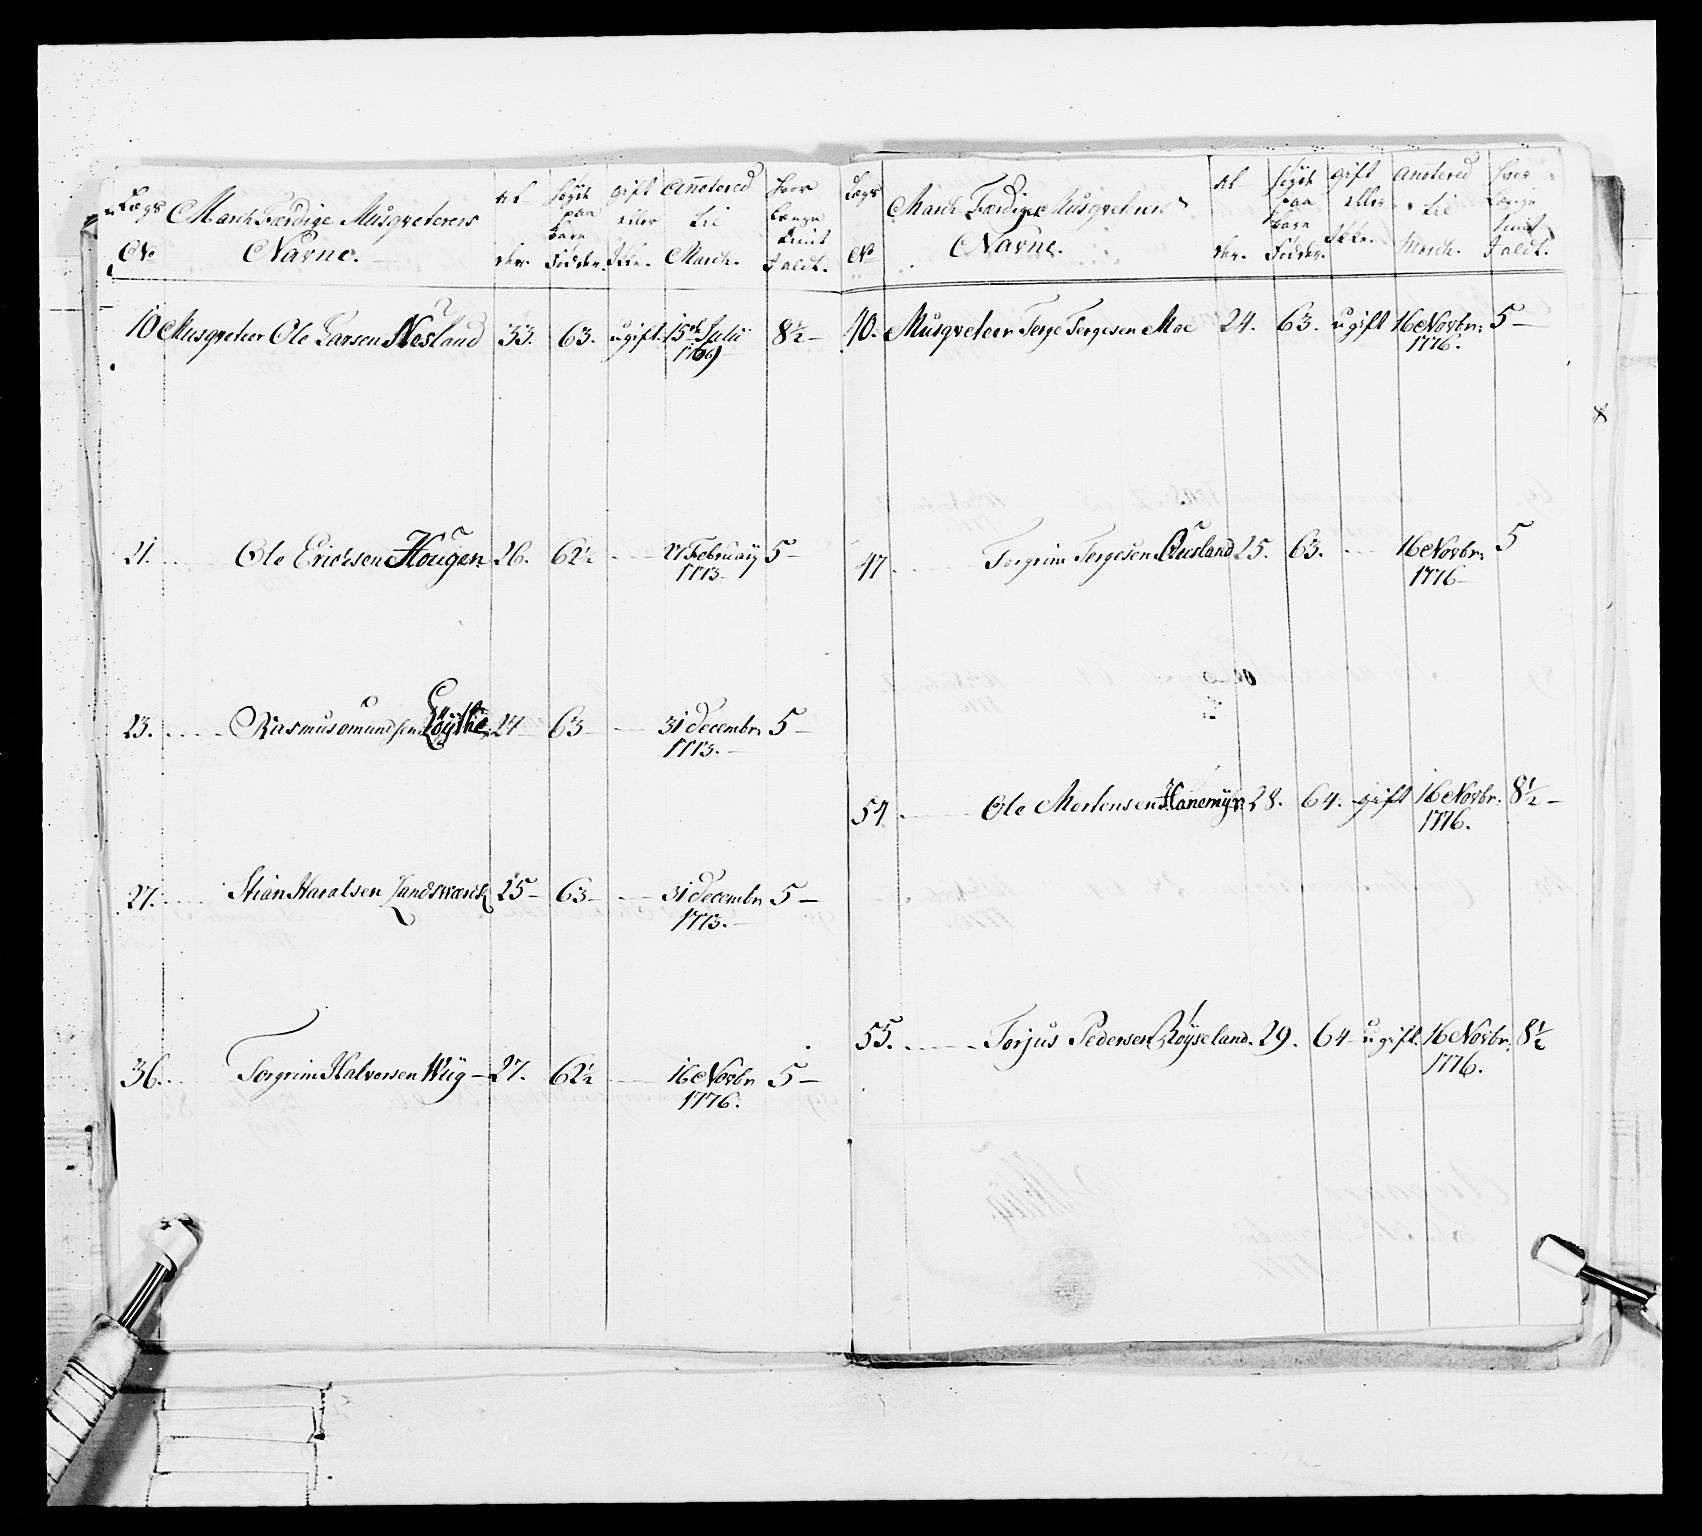 Lægs No | March Færdige Musqveterers Navne. | Al der. | Høyde paa bare Fødder. | gift eller Ikke. | Anotered til March. | Hvor Længe tient J alt.
10 Musqveteer Ole Larsen Nesland 33. 63. ugift. 15de Julii 1769 8½ –
21. Ole Erichsen Hougen 26. 62½ 27 Februarij 1773. 5 –
23. Rasmus omundsen Løythe 24 63 – 31 decembr 1773. – 5 –
27. Stian Haralsen Landswærck 25 – 63 – 31 decembr 1773. – 5 –
36. Torgrim Halvorsen Wiig – 27. 62½ 16 Novbr 1776. 5 –
Lægs No | March Færdige Musqveterers Navne. | Al der. | Høyde paa bare Fødder. | gift eller Ikke. | Anotered til March. | Hvor Længe tient J alt.
40. Musqveteer Terge Tergesen Moe 24. 63. ugift 16 Novbr: 1776. 5 –
47 Torgrim Tergesen Ausland 25. 63. 16 Novbr: 1776 – 5
54 Ole Mortensen Hanemyr 28. 64. gift 16 Novbr. 1776. 8½ –
55. Torjus Pedersen Røyseland. 29. 64 – ugift. 16 Novbr. 1776. 8½